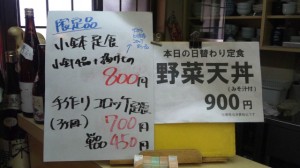 限定品
小鉢定食
小鉢4品+揚げもの
800円
手作りコロッケ定食
(3ヶ)700円
単品450円
本日の日替わり定食
野菜天丼
(みそ汁付)
900円